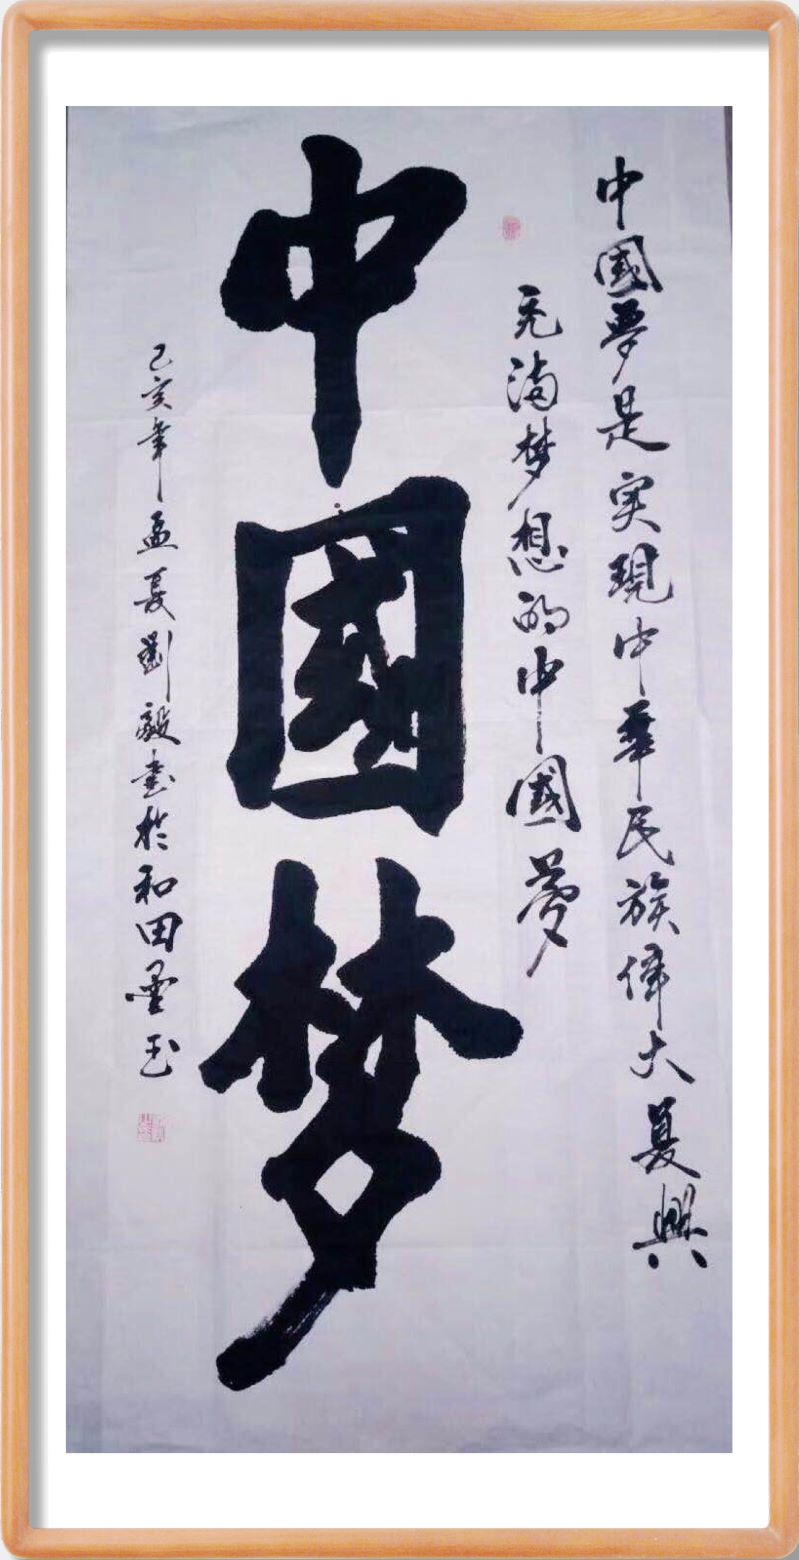 中國夢是实現中華民族偉大复興
充满梦想的中國夢
中國梦
己亥年孟夏劉毅书於和田墨玉